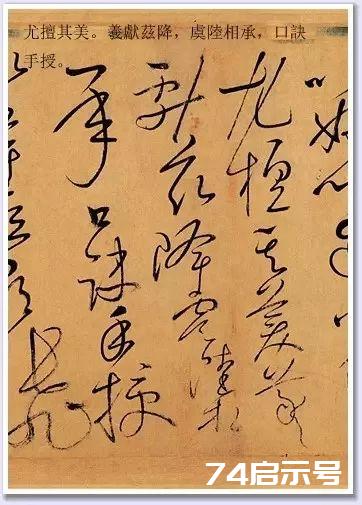 尤擅其美。羲獻茲降，虞陸相承，口訣
手授。
尤擅其美羲
獻茲降虞陸相
承口訣手授
74启示号